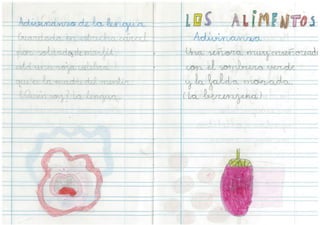 Adivinanza de la lengua
Guardada en estrecha cárcel
por soldados de marfil,
está una roja culebra
que es la madre del mentir.
La lengua.
LOS ALIMENTOS
Adivinanza
Una señora muy enseñoreada
con el sombrero verde
y la falda morada.
(La berenjena)